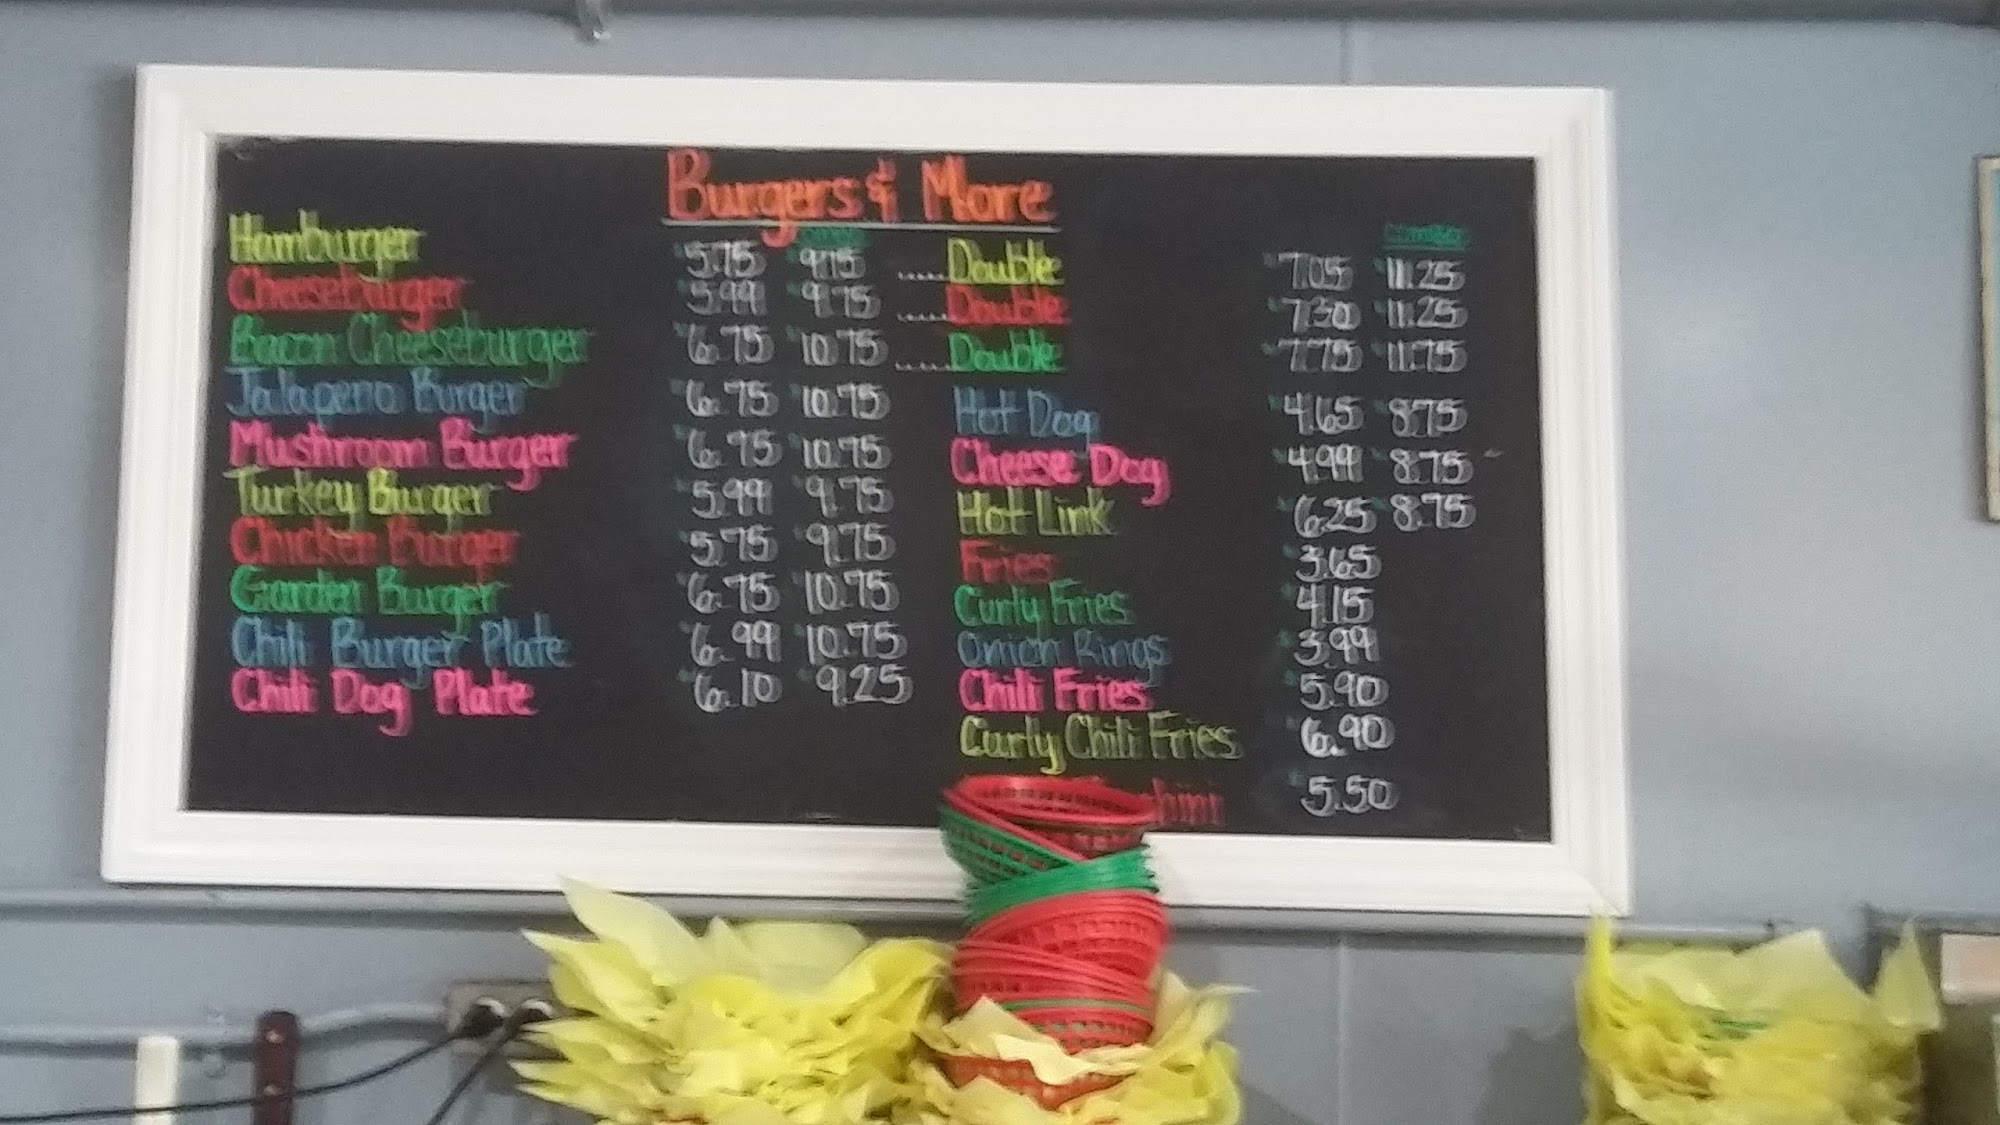 Burgers & More
Hamburger 5.75 9.75 .....Double 7.05 11.25
Cheeseburger 5.99 9.75 .....Double 7.30 11.25
Bacon Cheeseburger 6.75 10.75 .....Double 7.75 11.75
Jalapeno Burger 6.75 10.75
Mushroom Burger 6.75 10.75
Turkey Burger 5.99 9.75
Chicken Burger 5.75 9.75
Garden Burger 6.75 10.75
Chili Burger Plate 6.99 10.75
Chili Dog Plate 6.10 9.25
Hot Dog 4.65 8.75
Cheese Dog 4.99 8.75
Hot Link 6.25 8.75
Fries 3.65
Curly Fries 4.15
Onion Rings 3.99
Chili Fries 5.90
Curly Chili Fries 6.90
5.50